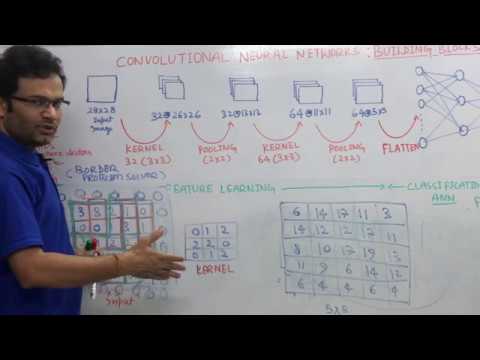 CONVOLUTIONAL NEURAL NETWORKS: BUILDING BLOCKS
28x28 32@26x26 32@13x13 64@11x11 64@5x5
Input
Image
KERNEL POOLING KERNEL POOLING FLATTEN
32 (3x3) (2x2) 64 (3x3) (2x2)
(BORDER
PROBLEM SOLVED)
FEATURE LEARNING CLASSIFICATION
ANN
0 1 2
2 2 0
0 1 2
KERNEL
6 14 17 11 3
14 12 12 17 11
8 10 17 19 13
11 9 6 14 12
6 4 4 6 4
5x5
Input